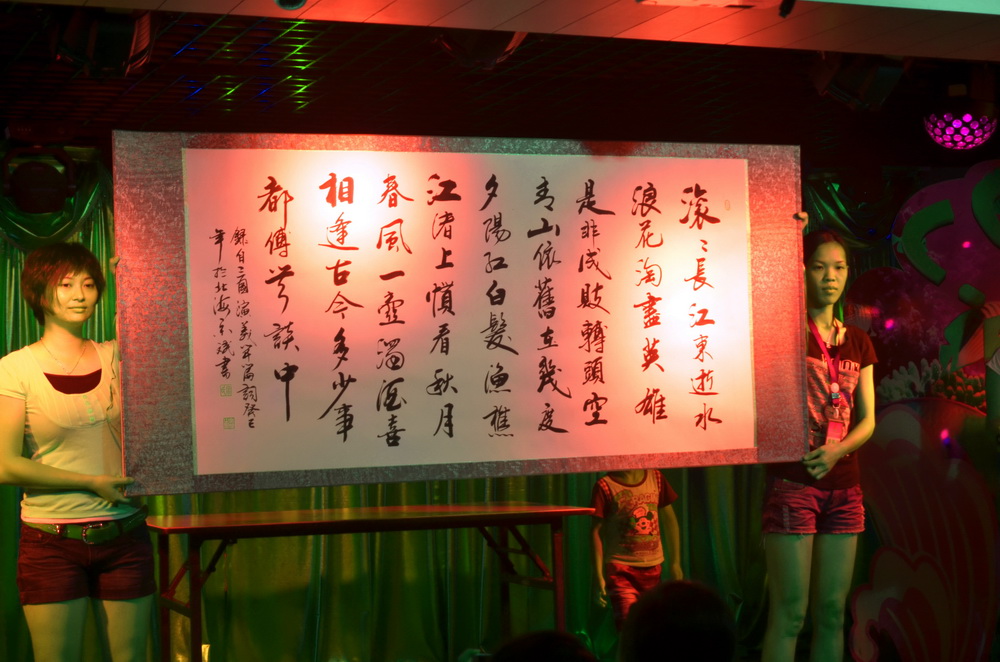 滚〻長江東逝水
浪花淘盡英雄
是非成敗轉頭空
青山依舊在幾度
夕陽紅白髮漁樵
江渚上慣看秋月
春風一壺濁酒喜
相逢古今多少事
都傅笑談中
錄自三國演義開篇詞癸巳
年於北海